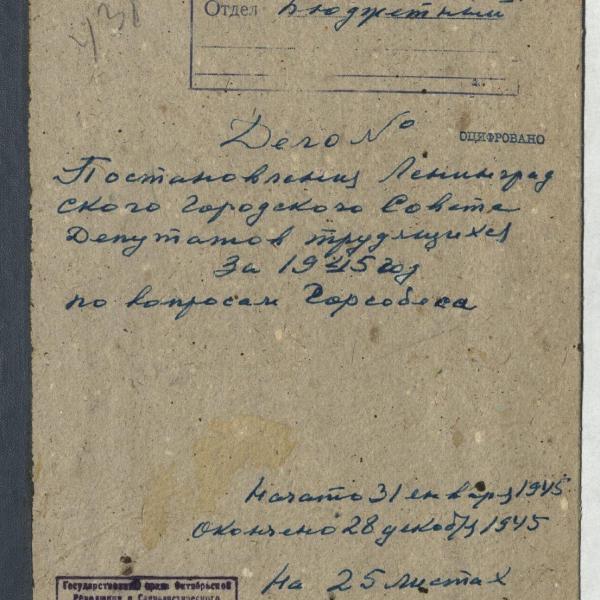 438
Отдел Бюджетный
Дело №
ОЦИФРОВАНО
Постановления Ленинград
ского Городского Совета
Депутатов трудящихся
За 1945 год
по вопросам Горсобеса
Начато 31 января 1945
Окончено 28 декабря 1945
На 25 листах
Государственный архив Октябрьской
Революции и Социалистического